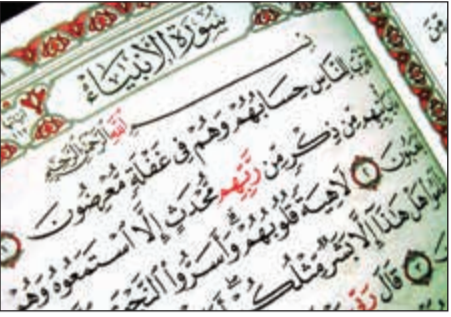 سُورَةُ الأَنْبِيَاءِ
بِسْمِ اللَّهِ الرَّحْمَٰنِ الرَّحِيمِ
لِلنَّاسِ حِسَابُهُمْ وَهُمْ فِي غَفْلَةٍ مُعْرِضُونَ ١
مِنْ ذِكْرٍ مِنْ رَبِّهِمْ مُحْدَثٍ إِلَّا اسْتَمَعُوهُ وَهُمْ
٢ لَاهِيَةً قُلُوبُهُمْ وَأَسَرُّوا النَّجْوَى
هَلْ هَٰذَا إِلَّا بَشَرٌ مِثْلُكُمْ
٣ قَالَ